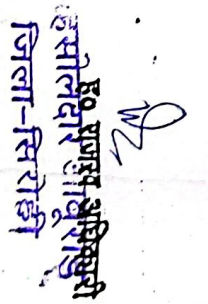 ह० राजस्व अधिकारी
तहसीलदार आबूरोड
जिला-सिरोही